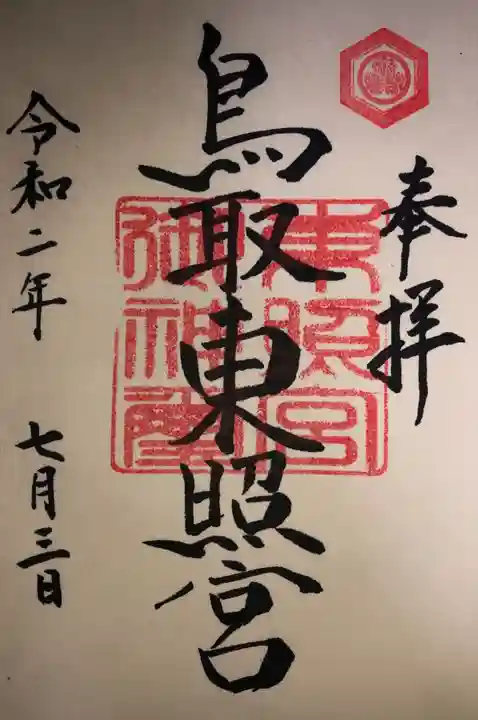 奉拝
鳥取東照宮
東照宮
御神璽
令和二年 七月三日